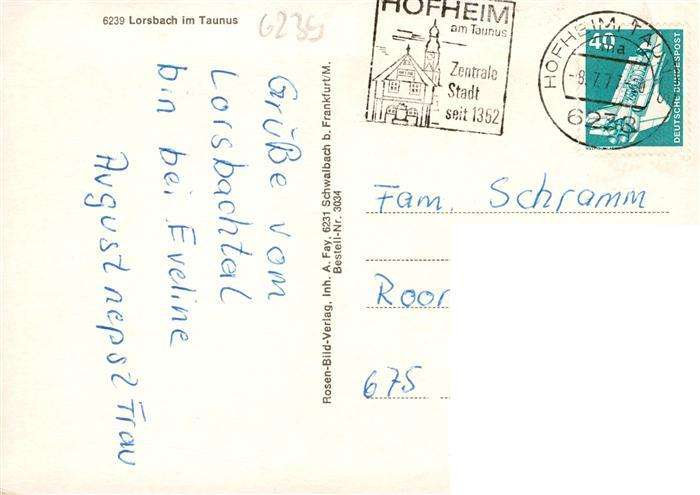 6239 Lorsbach im Taunus
6239
Grüße vom
Lorsbachtal
bin bei Eveline
August nepst Frau
Rosen-Bild-Verlag, Inh. A. Fay, 6231 Schwalbach b. Frankfurt/M.
Bestell-Nr. 3034
HOFHEIM
am Taunus
Zentrale
Stadt
seit 1352
HOFHEIM, TAUNUS
ma
-8.7.7
6238
40
DEUTSCHE BUNDESPOST
Fam. Schramm
Roor
675